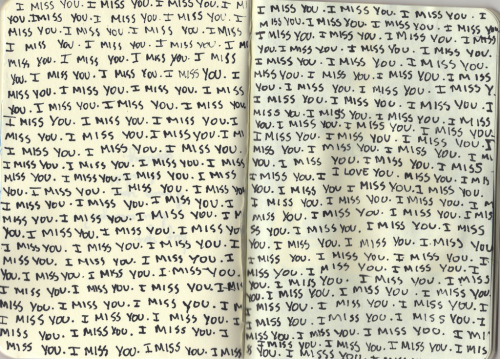 I MISS YOU. I MISS YOU. I MISS YOU. I M
YOU. I MISS YOU. I MISS YOU. I MISS YOU.
MISS YOU. I MISS YOU. I MISS YOU. I MISS
I MISS YOU. I MISS YOU. I MISS YOU. I M
YOU. I MISS YOU. I MISS YOU. I MISS
YOU. I MISS YOU. I MISS YOU. I MISS YOU. I
MISS YOU. I MISS YOU. I MISS YOU. I MISS
YOU. I MISS YOU. I MISS YOU. I MISS YOU
I MISS YOU. I MISS YOU. I MISS YOU. I
MISS YOU. I MISS YOU. I MISS YOU. I MI
I MISS YOU. I MISS YOU. I MISS YOU.
I MISS YOU. I MISS YOU. I MISS YOU. I MISS
MISS YOU. I MISS YOU. I MISS YOU. I MISS
YOU. I MISS YOU. I MISS YOU. I MISS YOU
I MISS YOU. I MISS YOU. I MISS YOU. I
MISS YOU. I MISS YOU. I MISS YOU. I M
YOU. I MISS YOU. I MISS YOU. I MISS YOU.
I MISS YOU. I MISS YOU. I MISS YOU. I
MISS YOU. I MISS YOU. I MISS YOU. I
YOU. I MISS YOU. I MISS YOU. I MISS YOU.
I MISS YOU. I MISS YOU. I MISS YOU. I MISS
MISS YOU. I MISS YOU. I MISS YOU. I M
YOU. I MISS YOU. I MISS YOU. I MISS
MISS YOU. I MISS YOU. I MISS YOU. I
MISS YOU. I MISS YOU. I MISS YOU. I MISS
I MISS YOU. I MISS YOU. I MISS YOU. I
MISS YOU. I MISS YOU. I MISS YOU. I MISS YOU
I MISS YOU. I MISS YOU. I MISS YOU. I MISS
YOU. I MISS YOU. I MISS YOU. I MISS YOU.
I MISS YOU. I MISS YOU. I MISS YOU.
MISS YOU. I MISS YOU. I MISS YOU. I MISS
YOU. I MISS YOU. I MISS YOU. I MISS Y
I MISS YOU. I MISS YOU. I MISS YOU. I
MISS YOU. I MISS YOU. I MISS YOU. I MISS
YOU. I MISS YOU. I MISS YOU. I MISS YOU
I MISS YOU. I MISS YOU. I MISS YOU. I
MISS YOU. I MISS YOU. I MISS YOU. I MI
YOU. I MISS YOU. I MISS YOU. I MISS
I MISS YOU. I LOVE YOU. MISS YOU. I MIS
YOU. I MISS YOU. I MISS YOU. I MISS YOU.
I MISS YOU. I MISS YOU. I MISS YOU. I MI
MISS YOU. I MISS YOU. I MISS YOU. I MIS
SS YOU. I MISS YOU. I MISS YOU. I MISS
YOU. I MISS YOU. I MISS YOU. I MISS YOU
I MISS YOU. I MISS YOU. I MISS YOU.
MISS YOU. I MISS YOU. I MISS YOU. I MISS
YOU. I MISS YOU. I MISS YOU. I MISS YOU.
YOU. I MISS YOU. I MISS YOU. I MISS YOU
I MISS YOU. I MISS YOU. I MISS YOU.
MISS YOU. I MISS YOU. I MISS YOU. I MISS
YOU. I MISS YOU. I MISS YOU. I MISS YOU
MISS YOU. I MISS YOU. I MISS YOU. I MI
I MISS YOU. I MISS YOU. I MISS YOU. I MISS
YOU. I MISS YOU. I MISS YOU. I MISS YOU